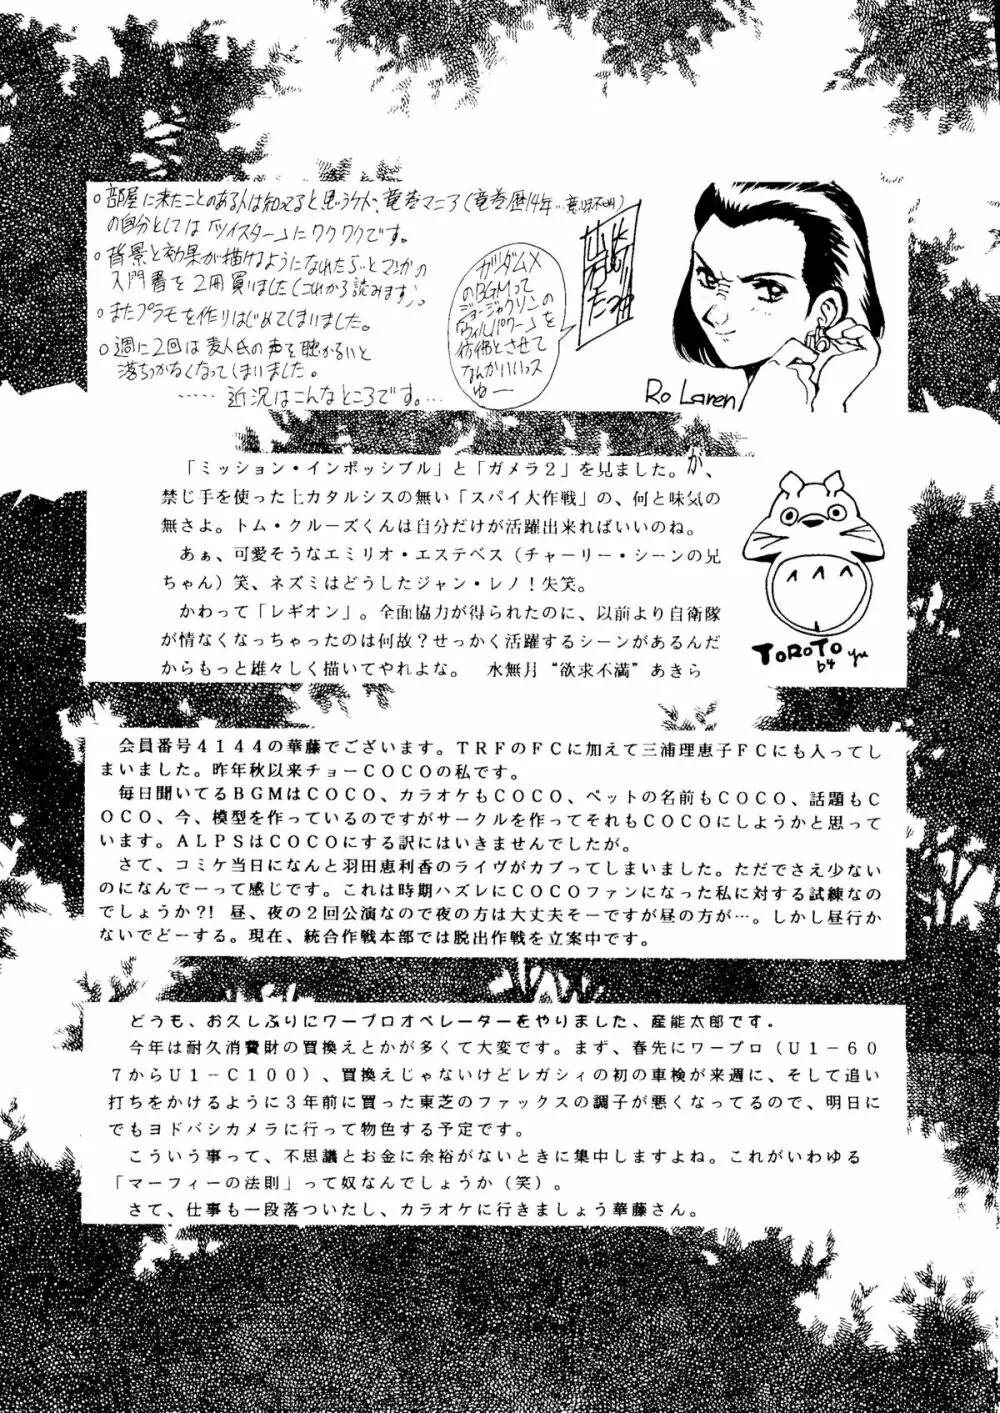 ○部屋に来たことのある人は知ってると思うケド、竜巻マニア(竜巻歴14年…意味不明)
の自分としては「ツイスター」にワクワクです。
○背景と効果が描けるようになれたらぃぃとマンガの
入門書を2冊買いました(コレから読みます)。
○またプラモを作りはじめてしまいました。
○週に2回は麦人氏の声を聴かないと
落ちつかなくなってしまいました。
……近況はこんなところです。…
ガンダムX
のBGMって
ジョー・ジャクソンの
「ウィルパワー」を
彷彿とさせて
なんかいいっス
ゆー
Ro Laren
「ミッション・インポッシブル」と「ガメラ2」を見ました。が、
禁じ手を使った上カタルシスの無い「スパイ大作戦」の、何と味気の
無さよ。トム・クルーズくんは自分だけが活躍出来ればいいのね。
あぁ、可愛そうなエミリオ・エステベス(チャーリー・シーンの兄
ちゃん)笑、ネズミはどうしたジャン・レノ!失笑。
かわって「レギオン」。全面協力が得られたのに、以前より自衛隊
が情なくなっちゃったのは何故?せっかく活躍するシーンがあるんだ
からもっと雄々しく描いてやれよな。 水無月“欲求不満”あきら
TOROTO
by yu
会員番号4144の華藤でございます。TRFのFCに加えて三浦理恵子FCにも入ってし
まいました。昨年秋以来チョーCOCOの私です。
毎日聞いてるBGMはCOCO、カラオケもCOCO、ペットの名前もCOCO、話題もC
OCO、今、模型を作っているのですがサークルを作ってそれもCOCOにしようかと思って
います。ALPSはCOCOにする訳にはいきませんでしたが。
さて、コミケ当日になんと羽田恵利香のライヴがカブってしまいました。ただでさえ少ない
のになんでーって感じです。これは時期ハズレにCOCOファンになった私に対する試練なの
でしょうか?!昼、夜の2回公演なので夜の方は大丈夫そーですが昼の方が…。しかし昼行か
ないでどーする。現在、統合作戦本部では脱出作戦を立案中です。
どうも、お久しぶりにワープロオペレーターをやりました、産能太郎です。
今年は耐久消費財の買換えとかが多くて大変です。まず、春先にワープロ(U1-60
7からU1-C100)、買換えじゃないけどレガシィの初の車検が来週に、そして追い
打ちをかけるように3年前に買った東芝のファックスの調子が悪くなってるので、明日に
でもヨドバシカメラに行って物色する予定です。
こういう事って、不思議とお金に余裕がないときに集中しますよね。これがいわゆる
「マーフィーの法則」って奴なんでしょうか(笑)。
さて、仕事も一段落ついたし、カラオケに行きましょう華藤さん。